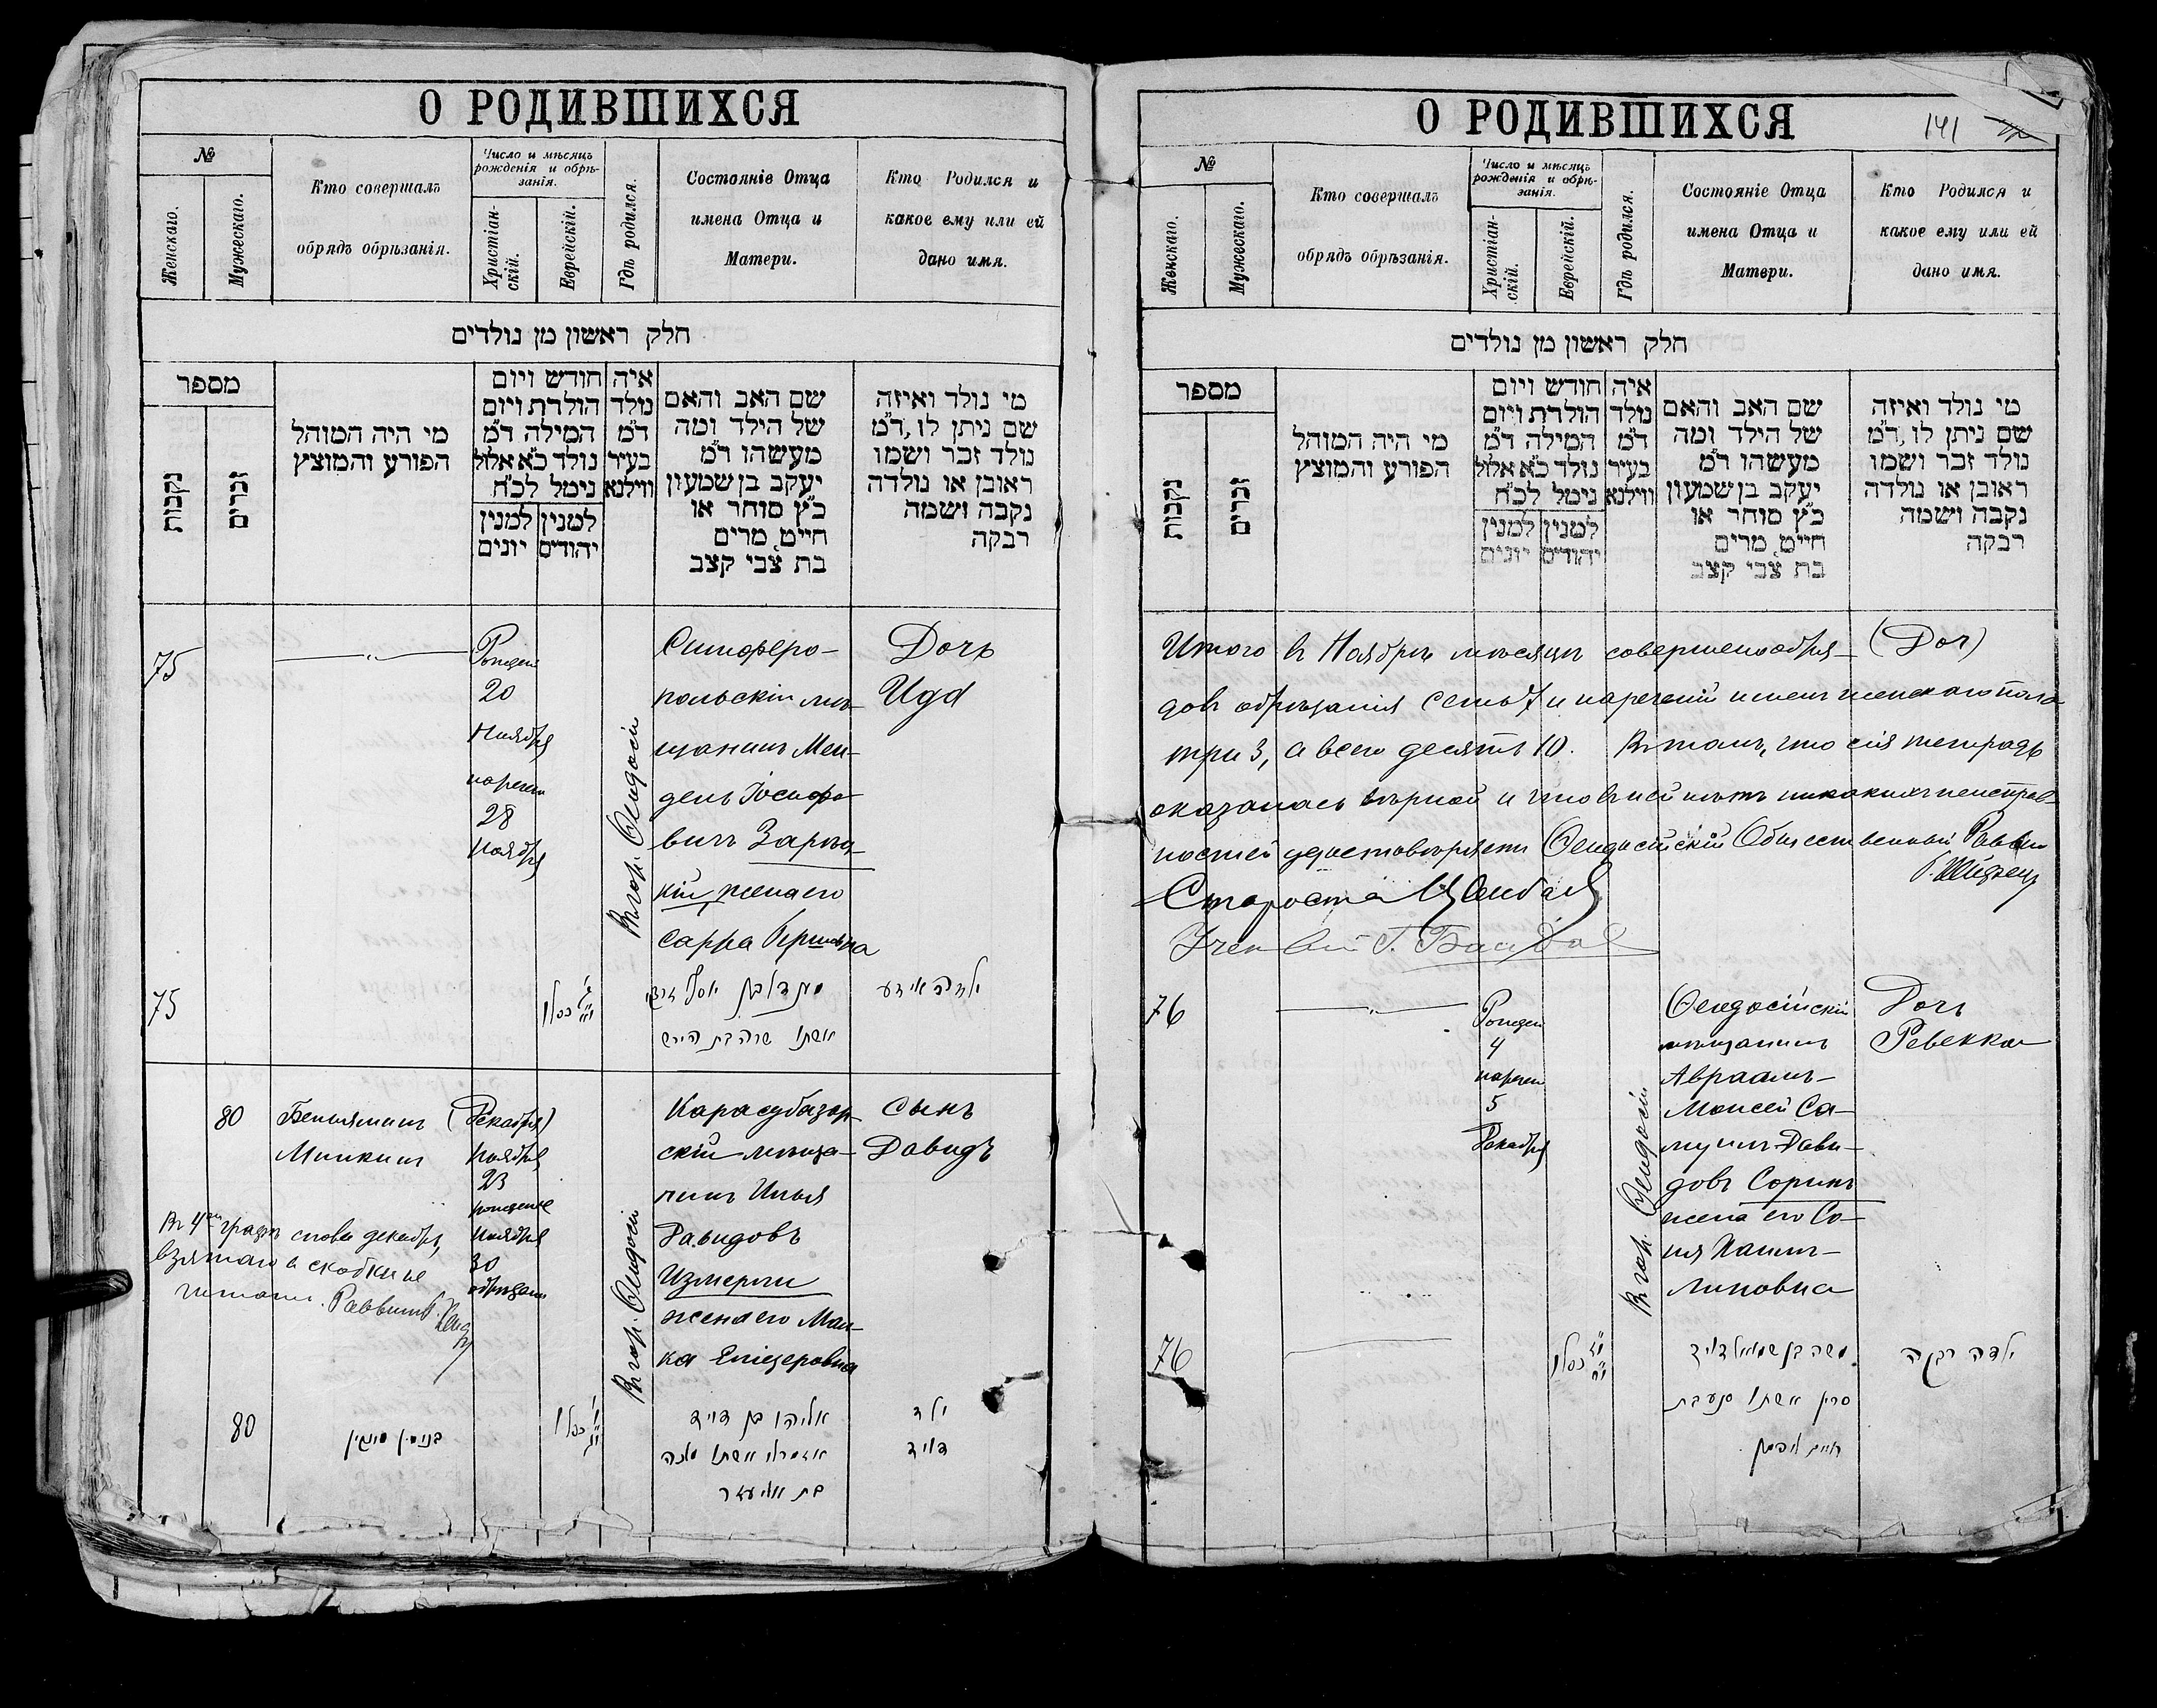 О РОДИВШИХСЯ
№
Женскаго.
Мужескаго.
Кто совершалъ
обрядъ обрѣзанія.
Число и мѣсяцъ
рожденія и обрѣ-
занія.
Христіан-
скій.
Еврейскій.
Гдѣ родился.
Состояніе Отца
имена Отца и
Матери.
Кто Родился и
какое ему или ей
дано имя.
חלק ראשון מן נולדים
מספר
נקבות
זכרים
מי היה המוהל
הפורע והמוצץ
חודש ויום
הולדת ויום
המילה ד״מ
נולד כ״א אלול
נימל לכ״ח
למנין
יהודים
למנין
יונים
איה
נולד
ד״מ
בעיר
ווילנא
שם האב והאם
של הילד ומה
מעשהו ד״מ
יעקב בן שמעון
כ״ץ סוחר או
חייט, מרים
בת צבי קצב
מי נולד ואיזה
שם ניתן לו, ד״מ
נולד זכר ושמו
ראובן או נולדה
נקבה ושמה
רבקה
75
20
Ноября
28
Ноября
Въ гор. Ѳеодосіи
Симферо-
польскій мѣ-
щанинъ Мен-
дель Іосифо-
вичъ
кій, жена его
Сарра
Дочь
Ида
75
כסלו
אשתו שרה בת הירש
ילדה אידע
80
Беньяминъ
Минкинъ
(Декабря)
Ноября
23
Ноября
30
Въ гор. Ѳеодосіи
Карасубазар-
скій мѣща-
нинъ Илья
Давидовъ
Измерли
жена его Мал-
ка Еліезеровна
Сынъ
Давидъ
Въ 4ой графѣ слова декабря,
взятаго в скобки не
читать. Раввинъ
80
כסלו
אליהו בן דויד
אשתו מלכה
בת אליעזר
ילד
דויד
О РОДИВШИХСЯ
141
№
Женскаго.
Мужескаго.
Кто совершалъ
обрядъ обрѣзанія.
Число и мѣсяцъ
рожденія и обрѣ-
занія.
Христіан-
скій.
Еврейскій.
Гдѣ родился.
Состояніе Отца
имена Отца и
Матери.
Кто Родился и
какое ему или ей
дано имя.
חלק ראשון מן נולדים
מספר
נקבות
זכרים
מי היה המוהל
הפורע והמוצץ
חודש ויום
הולדת ויום
המילה ד״מ
נולד כ״א אלול
נימל לכ״ח
למנין
יהודים
למנין
יונים
איה
נולד
ד״מ
בעיר
ווילנא
שם האב והאם
של הילד ומה
מעשהו ד״מ
יעקב בן שמעון
כ״ץ סוחר או
חייט, מרים
בת צבי קצב
מי נולד ואיזה
שם ניתן לו, ד״מ
נולד זכר ושמו
ראובן או נולדה
נקבה ושמה
רבקה
Итого въ Ноябрѣ мѣсяцѣ совершено обря- (Доч)
довъ обрѣзанія семь 7 и нареченій именъ женскаго пола
три 3, а всего десять 10. Въ томъ, что сія тетрадь
оказалась вѣрной и что въ ней нѣтъ никакихъ неисправ-
ностей удостовѣряетъ Ѳеодосійскій Общественный Раввинъ
Староста
76
4
5
Декабря
Въ гор. Ѳеодосіи
Ѳеодосійскій
мѣщанинъ
Авраамъ-
Моисей Са-
муилъ-Дави-
довъ Соринъ
жена его Со-
ня Хаимъ-
Липовна
Дочь
Ревекка
76
כסלו
משה בן שמואל דויד
סרין אשתו
חיים ליפמן
ילדה רבקה